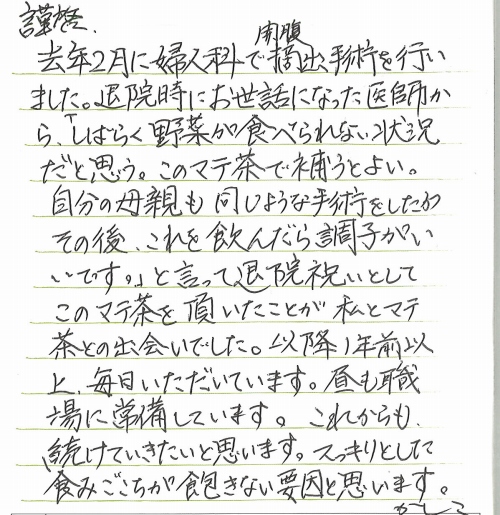 謹啓、
去年2月に婦人科で開腹摘出手術を行い
ました。退院時にお世話になった医師か
ら、「しばらく野菜が食べられない状況
だと思う。このマテ茶で補うとよい。
自分の母親も同じような手術をしたが
その後、これを飲んだら調子がい
いです。」と言って退院祝いとして
このマテ茶を頂いたことが私とマテ
茶との出会いでした。以降1年前以
上、毎日いただいています。昼も職
場に常備しています。これからも、
続けていきたいと思います。スッキリとした
飲みごこちが飽きない要因と思います。
かしこ